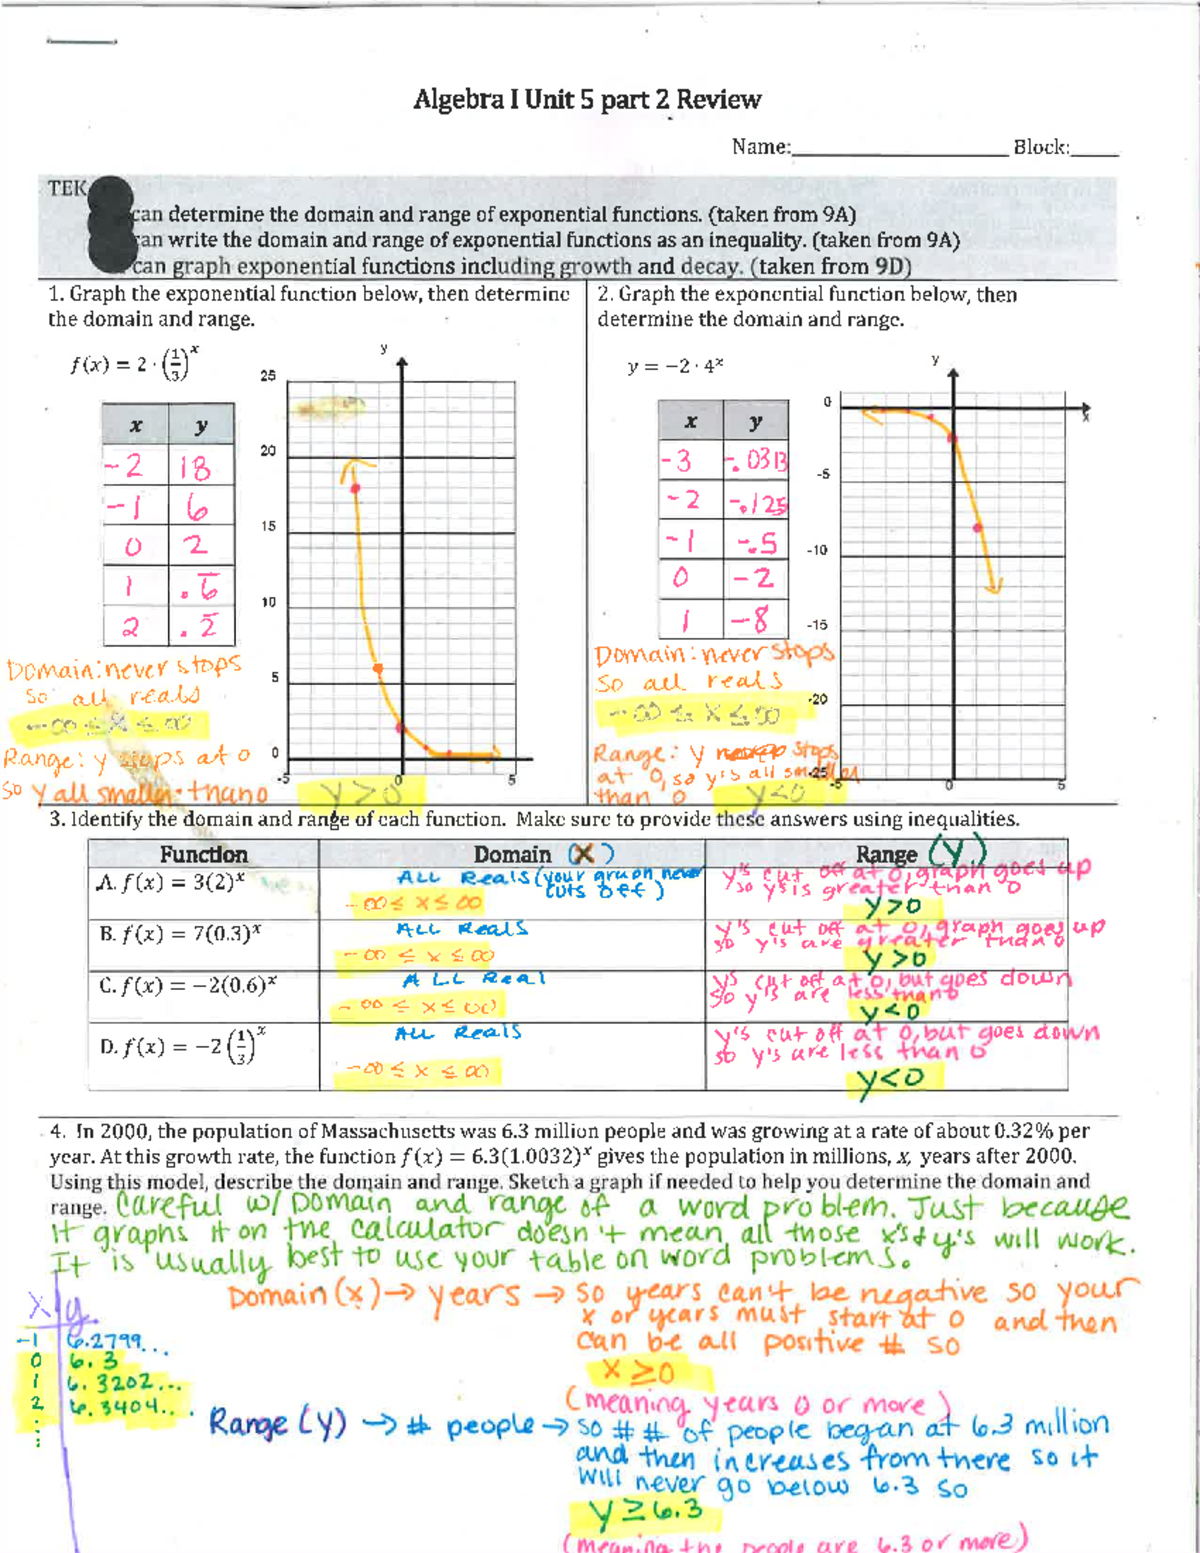 Algebra I Unit 5 part 2 Review
Name: Block:
TEK
can determine the domain and range of exponential functions. (taken from 9A)
can write the domain and range of exponential functions as an inequality. (taken from 9A)
can graph exponential functions including growth and decay. (taken from 9D)
1. Graph the exponential function below, then determine
the domain and range.
f(x) = 2 · (1/3)^x
x y
-2 18
-1 6
0 2
1 .6̅
2 .2̅
y
25
20
15
10
5
0
-5 0 5
Domain: never stops
so all reals
-∞ ≤ x ≤ ∞
Range: y stops at 0
so y all smaller than 0
y > 0
2. Graph the exponential function below, then
determine the domain and range.
y = -2 · 4^x
x y
-3 -.0313
-2 -.125
-1 -.5
0 -2
1 -8
y
x
0
-5
-10
-15
-20
-25
-5 0 5
Domain: never stops
so all reals
-∞ ≤ x ≤ ∞
Range: y stops
at 0, so y's all smaller
than 0
y<0
3. Identify the domain and range of each function. Make sure to provide these answers using inequalities.
Function Domain (x) Range (y)
A. f(x) = 3(2)^x
ALL Reals (your graph never
cuts off)
-∞ ≤ x ≤ ∞
y's cut off at 0, graph goes up
so y's is greater than 0
y>0
B. f(x) = 7(0.3)^x
ALL Reals
-∞ ≤ x ≤ ∞
y's cut off at 0, graph goes up
so y's are greater than 0
y>0
C. f(x) = -2(0.6)^x
ALL Real
-∞ ≤ x ≤ ∞
y's cut off at 0, but goes down
so y's are less than 0
y<0
D. f(x) = -2 (1/3)^x
ALL Reals
-∞ ≤ x ≤ ∞
y's cut off at 0, but goes down
so y's are less than 0
y<0
4. In 2000, the population of Massachusetts was 6.3 million people and was growing at a rate of about 0.32% per
year. At this growth rate, the function f(x) = 6.3(1.0032)^x gives the population in millions, x, years after 2000.
Using this model, describe the domain and range. Sketch a graph if needed to help you determine the domain and
range. Careful w/ Domain and range of a word problem. Just because
it graphs it on the calculator doesn't mean all those x's & y's will work.
It is usually best to use your table on word problems.
x y
-1 6.2799...
0 6.3
1 6.3202...
2 6.3404...
Domain (x) → years → so years can't be negative so your
x or years must start at 0 and then
can be all positive # so
x ≥ 0
(meaning years 0 or more)
Range (y) → # people → so # # of people began at 6.3 million
and then increases from there so it
will never go below 6.3 so
y ≥ 6.3
(meaning the people are 6.3 or more)